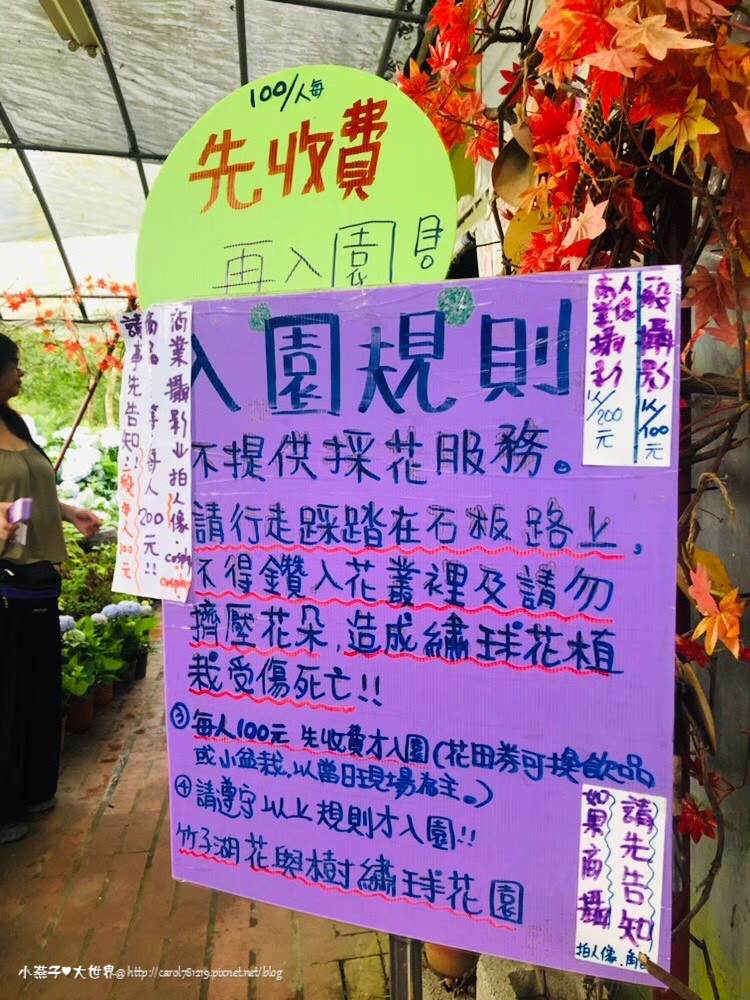 100/人每
先收費
再入園!
入園規則
不提供採花服務。
請行走踩踏在石板路上,
不得鑽入花叢裡及請勿
擠壓花朵,造成繡球花植
栽受傷死亡!!
③每人100元 先收費才入園(花田券可換飲品
或小盆栽,以當日現場為主。)
④請遵守以上規則才入園!!
竹子湖花與樹繡球花園
商業攝影业拍人像.cosplay
每人200元!!
請事先告知!!
一般每人100元
一般攝影1人/100元
商業攝影1人/200元
人像
請先告知
如果商攝
拍人像.角
小燕子♥大世界@http://carol781219.pixnet.net/blog